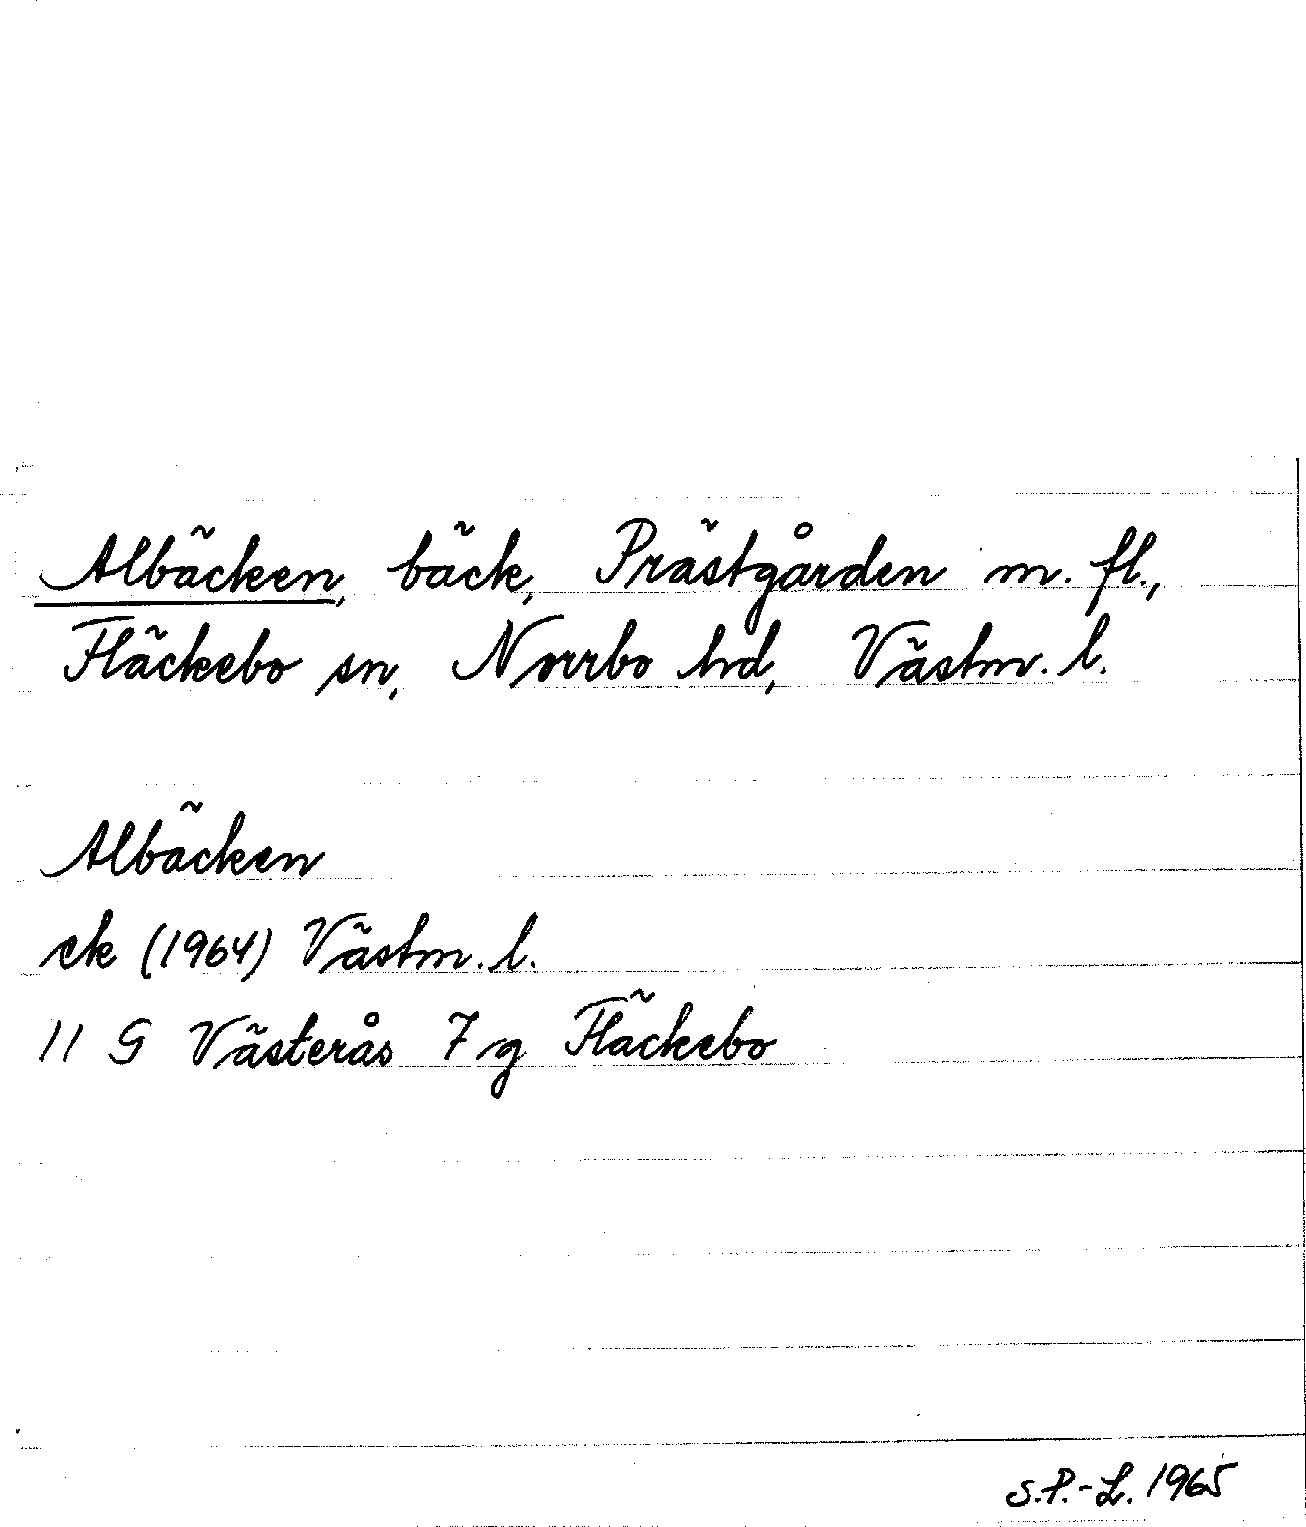 Albäcken, bäck, Prästgården m. fl.,
Fläckebo sn, Norrbo hd, Västm. l.
Albäcken
ek (1964) Västm. l.
11 G Västerås 7 g Fläckebo
S.P.-L. 1965